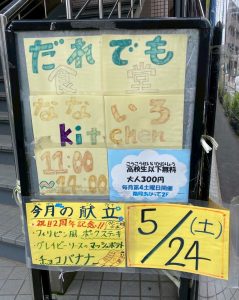 だれでも
食堂
なないろ
kitchen
11:00
~14:00
こうこうせいいかむりょう
高校生以下無料
大人300円
毎月第4土曜日開催
今月の献立
祝!!2周年記念!!
・フィリピン風ポークステーキ
・グレイビーソースのマッシュポテト
・チョコバナナ
5/24(土)